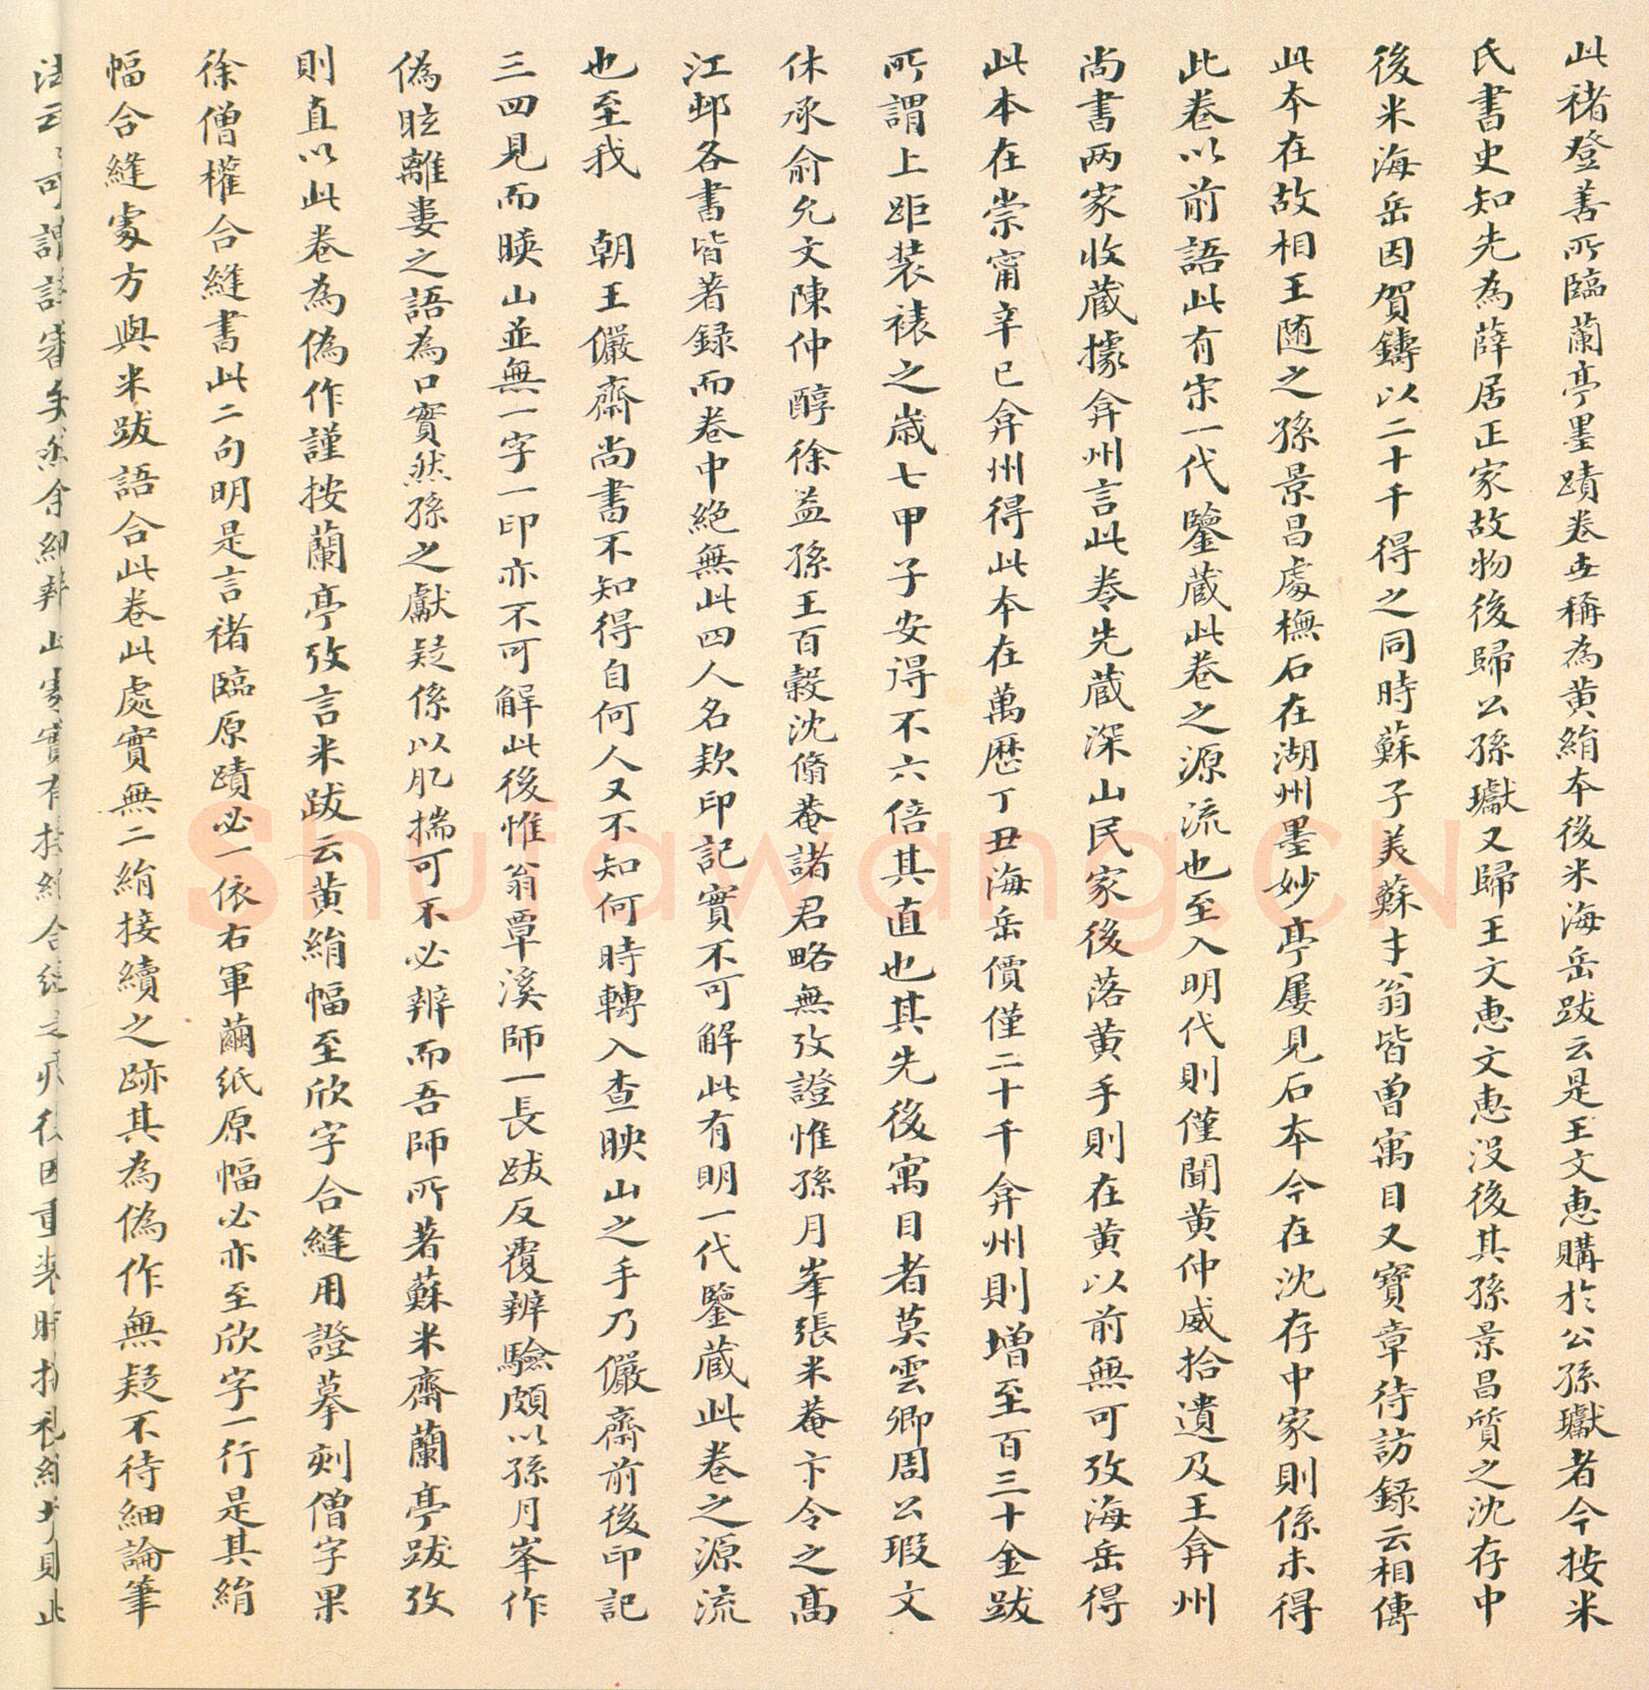 此褚登善所臨蘭亭墨蹟卷世稱為黄絹本後米海岳跋云是王文惠購於公孫瓛者今按米
氏書史知先為薛居正家故物後歸公孫瓛又歸王文惠文惠没後其孫景昌質之沈存中
後米海岳因賀鑄以二十千得之同時蘇子美蘇才翁皆曽寓目又寶章待訪録云相傳
此本在故相王随之孫景昌處橅石在湖州墨妙亭屢見石本今在沈存中家則係未得
此卷以前語此有宋一代鑒蔵此卷之源流也至入明代則僅聞黄仲威拾遺及王弇州
尚書两家收蔵據弇州言此卷先蔵深山民家後落黄手則在黄以前無可攷海岳得
此本在崇甯辛巳弇州得此本在萬厯丁丑海岳價僅二十千弇州則增至百三十金跋
所謂上距装裱之歳七甲子安得不六倍其直也其先後寓目者莫雲卿周公瑕文
休承俞允文陳仲醇徐益孫王百穀沈脩菴諸君略無攷證惟孫月峯張米菴卞令之髙
江邨各書皆著録而卷中絶無此四人名欵印記實不可解此有明一代鑒蔵此卷之源流
也至我 朝王儼齋尚書不知得自何人又不知何時轉入查映山之手乃儼齋前後印記
三四見而映山並無一字一印亦不可解此後惟翁覃溪師一長跋反覆辨驗頗以孫月峯作
偽眩離婁之語為口實然孫之獻疑係以肊揣可不必辨而吾師所著蘇米齋蘭亭跋攷
則直以此卷為偽作謹按蘭亭攷言米跋云黄絹幅至欣字合縫用證摹刻僧字果
徐僧權合縫書此二句明是言褚臨原蹟必一依右軍繭紙原幅必亦至欣字一行是其絹
幅合縫處方與米跋語合此卷此處實無二絹接續之跡其為偽作無疑不待細論筆
法云云可謂詳審矣然余細辨此處實有接縫合縫之痕後因重装時